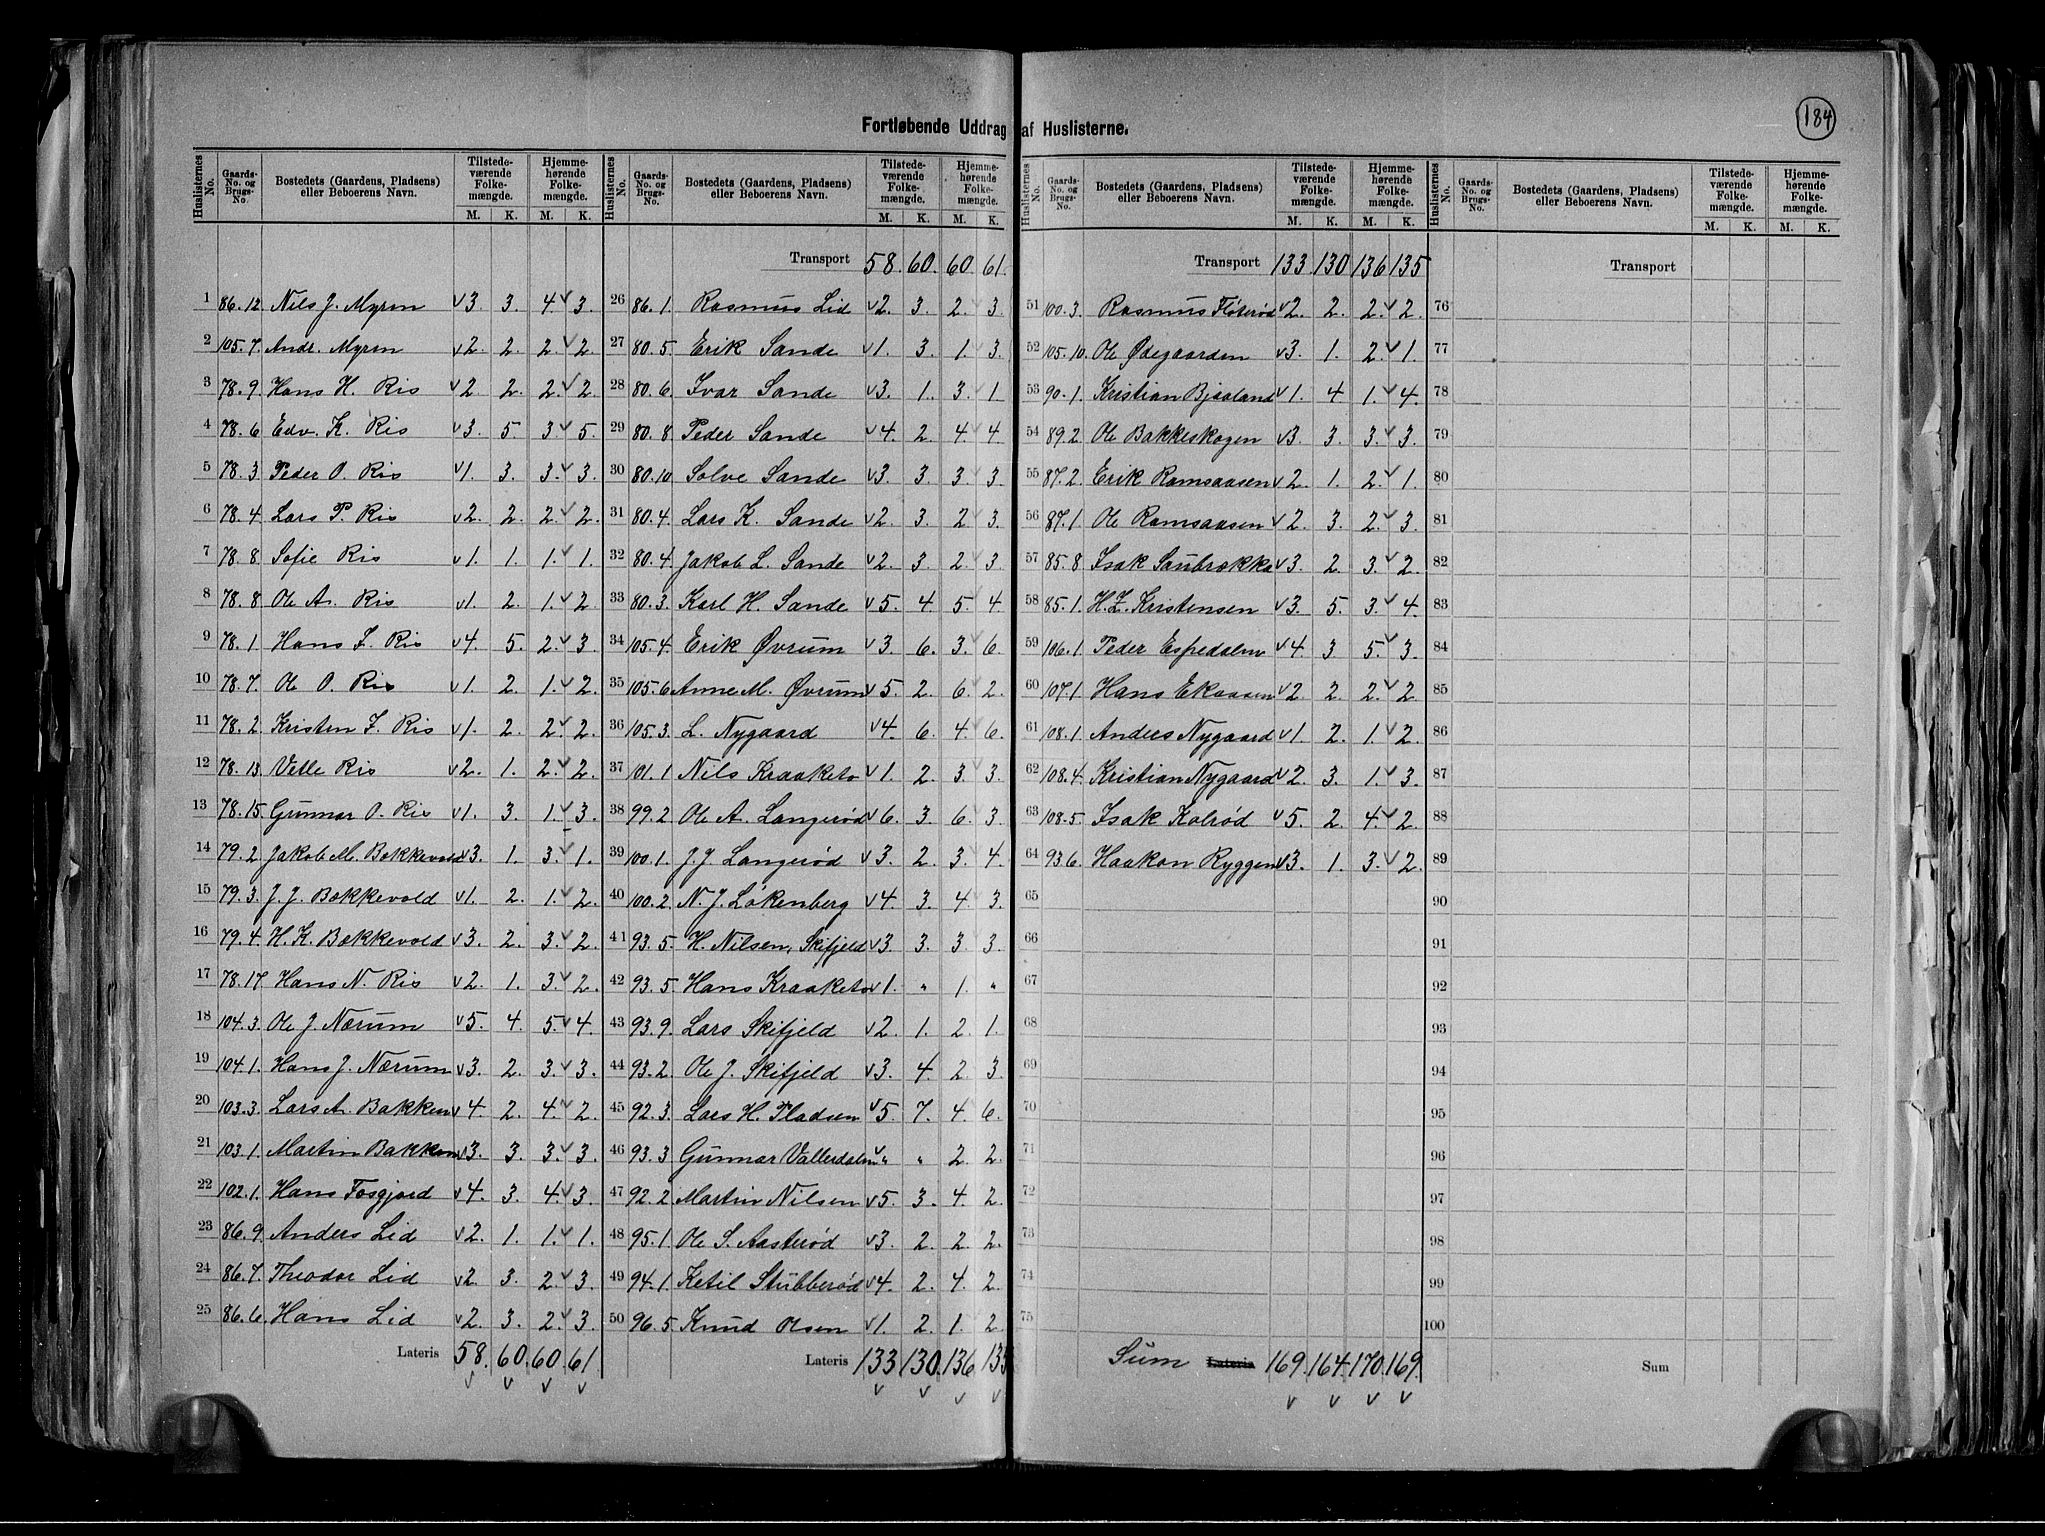 184
Fortløbende Uddrag af Huslisterne.
Huslisternes No. Gaards-No. og Brugs-No. Bostedets (Gaardens, Pladsens) eller Beboerens Navn. Tilstedeværende Folkemængde. M. K. Hjemmehørende Folkemængde. M. K.
1 86.12 Nils J. Myren v3. 3. 4.v 3.
2 105.7. Andr. Myren v2. 2. 2.v 2.
3 78.9. Hans H. Ris v2 2. 2.v 2.
4 78.6 Edv. K. Ris v3. 5. 3.v 5.
5 78.3 Peder O. Ris v1. 3. 3.v 3.
6 78.4 Lars P. Ris v2. 2. 2.v 2.
7 78.8. Sofie Ris v1. 1. 1.v 1.
8 78.8. Ole A. Ris v1. 2. 1.v 2
9 78.1 Hans L. Ris v4. 5. 2.v 3
10 78.7. Ole O. Ris v1. 2. 1.v 2.
11 78.2. Kristen L. Ris v1. 2. 2.v 2.
12 78.13. Vetle Ris v2. 1. 2.v 2.
13 78.15. Gunnar O. Ris v1. 3. 1.v 3.
14 79.2 Jakob M. Bakkevold v3. 1. 3.v 1.
15 79.3. J. J. Bakkevold v1. 2. 1.v 2.
16 79.4. H. K. Bækkevold v3. 2. 3.v 2.
17 78.17 Hans N. Ris v2. 1. 3.v 2.
18 104.3. Ole J. Nærum v5. 4. 5.v 4.
19 104.1. Hans J. Nærum v3. 2. 3.v 3.
20 103.3 Lars A. Bakken v4. 2. 4.v 2.
21 103.1 Martin Bakken v3. 3. 3.v 3.
22 102.1. Hans Fosgjord v4. 3. 4.v 3.
23 86.9. Anders Lid v2. 1. 1.v 1.
24 86.7. Theodor Lid v2. 3. 2.v 3.
25 86.6. Hans Lid v2. 3. 2.v 3.
Lateris 58. 60. 60. 61.
Huslisternes No. Gaards-No. og Brugs-No. Bostedets (Gaardens, Pladsens) eller Beboerens Navn. Tilstedeværende Folkemængde. M. K. Hjemmehørende Folkemængde. M. K.
Transport 58. 60. 60. 61.
26 86.1. Rasmus Lid v2. 3. 2. 3.
27 80.5. Erik Sande v1. 3. 1. 3.
28 80.6. Ivar Sande v3. 1. 3. 1
29 80.8. Peder Sande v4. 2. 4. 4
30 80.10. Solve Sande v3. 3. 3. 3
31 80.4. Lars K. Sande v2. 3. 2 3.
32 80.4. Jakob L. Sande v2. 3. 2. 3.
33 80.3. Karl H. Sande v5. 4. 5. 4
34 105.4. Erik Øvrum v3. 6. 3. 6.
35 105.6 Anne M. Øvrum v5. 2. 6. 2.
36 105.3. L. Nygaard v4. 6. 4. 6.
37 101.1 Nils Kraaketo v1. 2. 3. 3.
38 99.2 Ole A. Langerød v6. 3. 6. 3.
39 100.1. J. J. Langerød v3. 2. 3. 4.
40 100.2. N. J. Løkenberg v4. 3. 4. 3.
41 93.5. H. Nilsen, Skifjeld v3 3. 3. 3.
42 93.5. Hans Kraaketo v1. " 1. "
43 93.9. Lars Skifjeld v2. 1. 2. 1.
44 93.2. Ole J. Skifjeld v3. 4. 2. 3.
45 92.3. Lars H. Pladsen v5. 7. 4. 6.
46 93.3 Gunnar Vallerdalen v" " 2. 2.
47 92.2 Martin Nilsen v5. 3. 4. 2.
48 95.1 Ole S. Aasterød v3. 2. 2. 2.
49 94.1. Ketil Stubberød v4. 2. 4. 2.
50 96.5 Knud Olsen v1. 2. 1. 2.
Lateris 133. 130. 136. 135
Huslisternes No. Gaards-No. og Brugs-No. Bostedets (Gaardens, Pladsens) eller Beboerens Navn. Tilstedeværende Folkemængde. M. K. Hjemmehørende Folkemængde. M. K.
Transport 133. 130. 136. 135
51 100.3. Rasmus Fløterød v2. 2. 2.v 2.
52 105.10. Ole Ødegaarden v3. 1. 2.v 1.
53 90.1. Kristian Bjaaland v1. 4. 1.v 4.
54 89.2. Ole Bakkeskogen v3. 3. 3.v 3.
55 87.2. Erik Ramsaasen v2. 1. 2.v 1.
56 87.1. Ole Ramsaasen v2. 3. 2.v 3.
57 85.8 Isak Saubrækka v3. 2. 3.v 2.
58 85.1. H. Z. Kristensen v3. 5. 3.v 4.
59 106.1. Peder Espedalen v4. 3 5.v 3.
60 107.1 Hans Ekaasen v2. 2 2.v 2
61 108.1. Anders Nygaard v1. 2. 1.v 2.
62 108.4. Kristian Nygaard v2. 3. 1.v 3.
63 108.5. Isak Kolrød v5. 2. 4.v 2.
64 93.6. Haakon Ryggen v3. 1. 3.v 2.
65
66
67
68
69
70
71
72
73
74
75
Sum Lateris 169. 164. 170. 169.
Huslisternes No. Gaards-No. og Brugs-No. Bostedets (Gaardens, Pladsens) eller Beboerens Navn. Tilstedeværende Folkemængde. M. K. Hjemmehørende Folkemængde. M. K.
Transport
76
77
78
79
80
81
82
83
84
85
86
87
88
89
90
91
92
93
94
95
96
97
98
99
100
Sum